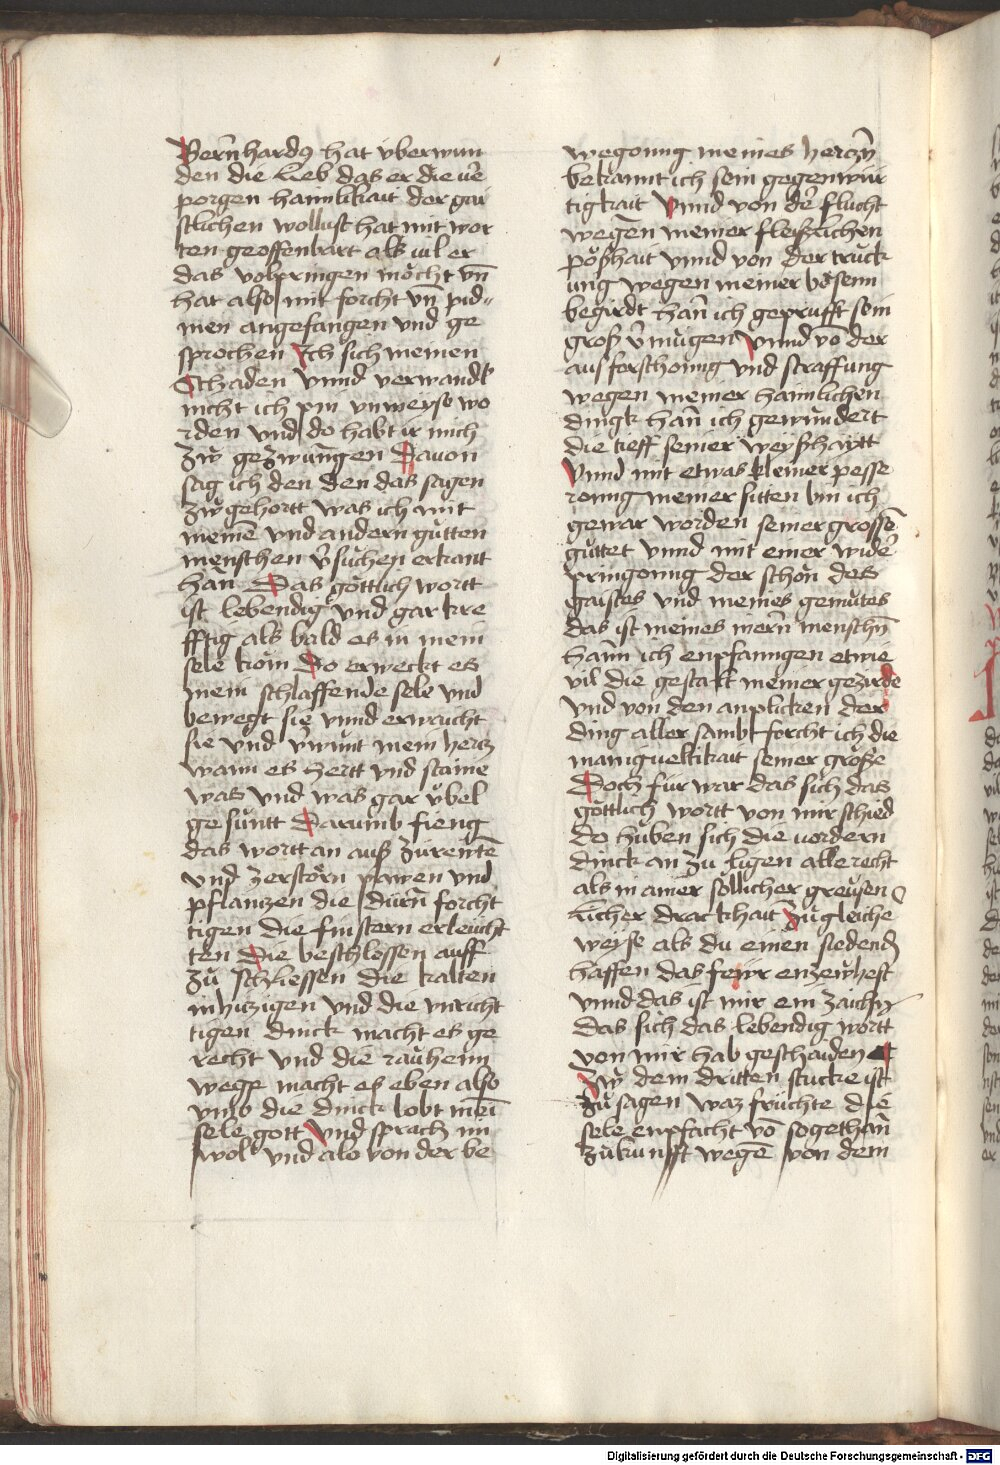 Bern̄hardꝰ hat vberwun
den die Leb das er die vē
porgen haimlikait der gai
stlichen wollust hat mit wor
ten geoffenbart als vil er
das volpringen möcht vn̄
hat also mit forcht vn̄ pid-
men angefangen vnd ge
sprochen Ich sich meinen
Schaden vnnd verwandlt
nicht ich pin vnweyse wo
rden vnd do habt ir mich
zw̆ gezwungen Dauon
sag ich den den das sagen
zw̆ gehortt was ich mit
meinē vnd andern gůtten
menschen v̄sůchen erkant
han Das gőttlich wortt
ist lebendig vnd gar kre
fftig als bald es in mein
sele kom Do erweckt es
mein schlaffende sele vnd
bewegt sie vnnd erwaicht
sie vnd v̄wunt mein hertz
wann es hertt vnd staine
was vnd was gar v̊bel
gesůntt Darumb fieng
das wortt an auß zůrewtē
vnd zerstörn pawen vnd
pflantzen die dürn̄ forcht
tigen die finstern erleücht
ten Die beschlossen auff
zů schliessen die kalten
inhitzigen vnd die vnricht
tigen dinck macht es ge
recht vnd die rauhenn
wege macht es eben also
vmb die dinck lobt mei̅
sele gott vnd sprach im
wol vnd also von der be
wegonng meines hertzn̄
bekannt ich sein gegenwür
tigkait vnnd von dē flucht
wegen meiner fleißlichen
pőßhait vnnd von der truck
ung wegen meiner bősenn
begirdt han̄ ich geprüfft sein
groß v̄mügen vnnd vō der
ausforschonng vnd straffung
wegen meiner haimlichen
dingk han̄ ich gewundert
die tieff seiner weyßhaytt
vnnd mit etwas kleiner pesse
ronng meiner sitten bin ich
gewar worden seiner grossē
gůttet vnnd mit einer widē
pringonng der schőn des
gaistes vnd meines gemůtes
das ist meines inern̄ menschn̄
hann ich enpfanngen etwie
vil die gestalt meiner gezirde
vnd von den anplicken der
ding aller sambt forcht ich die
manigueltikait seiner größe
Doch fürwar das sich das
gőttlich wortt von mir schied
do hůben sich die vordern
dinck an zu ligen alle recht
als in ainer sőllicher greůsen
licher drackhait zů gleiche
weyse als du einen siedendn̄
haffen das fewr enzewhest
vnnd das ist mir ein zaichn̄
das sich das lebendig wortt
von mir hab geschaiden
Zw̆ dem dritten stucke ist
zů sagen waz früchte die
sele enpfacht vō sogethan̄
zůkunfft wegē von dem
Digitalisierung gefördert durch die Deutsche Forschungsgemeinschaft - DFG